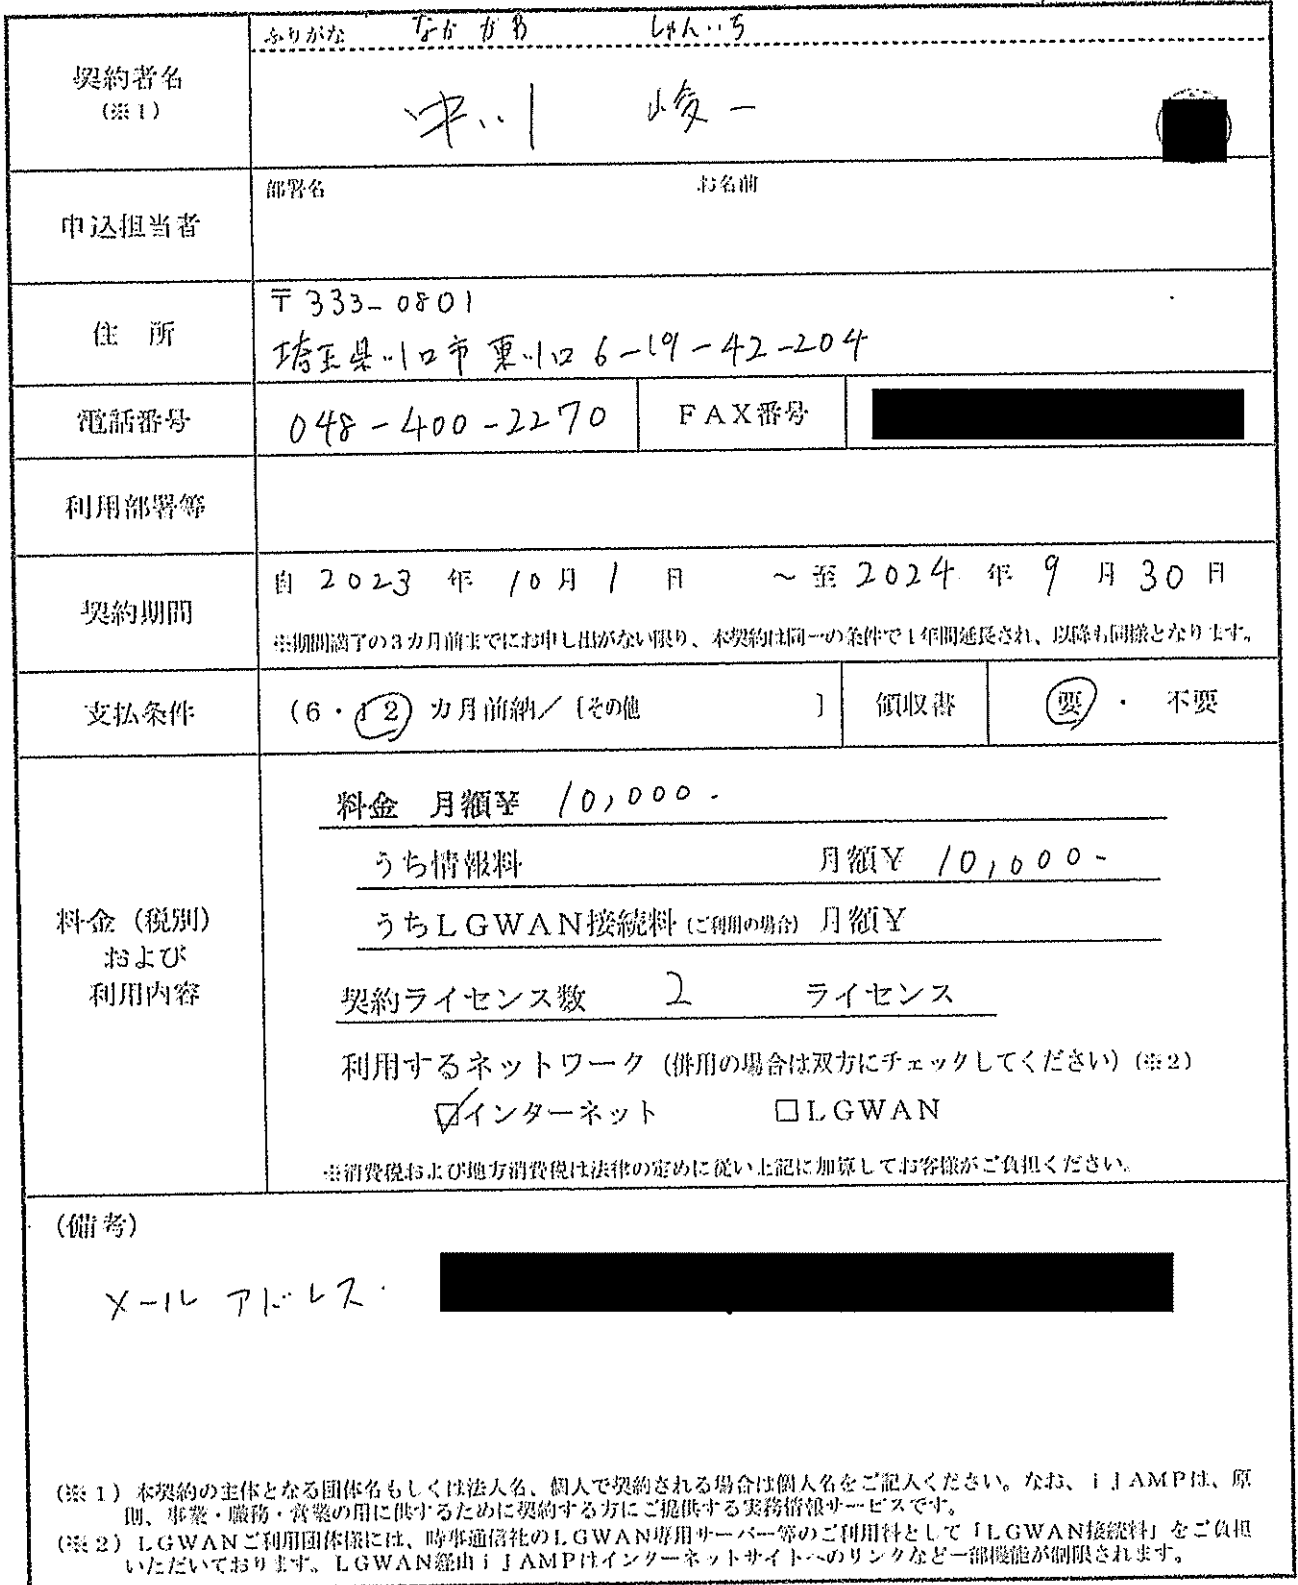 ふりがな なかがわ しゅんいち
契約者名
(※1)
中川 峻一
部署名 お名前
申込担当者
住 所
〒333-0801
埼玉県川口市東川口6-19-42-204
電話番号 048-400-2270 FAX番号
利用部署等
契約期間
自 2023 年 10 月 1 日 ～至 2024 年 9 月 30 日
※期間満了の3カ月前までにお申し出がない限り、本契約は同一の条件で1年間延長され、以降も同様となります。
支払条件 (6・12) カ月前納／〔その他 〕 領収書 要 ・ 不要
料金 月額¥ 10,000.
うち情報料 月額¥ 10,000-
うちLGWAN接続料(ご利用の場合) 月額¥
料金（税別）
および
利用内容
契約ライセンス数 2 ライセンス
利用するネットワーク（併用の場合は双方にチェックしてください）(※2)
☑インターネット □LGWAN
※消費税および地方消費税は法律の定めに従い上記に加算してお客様がご負担ください。
(備考)
メールアドレス.
(※1) 本契約の主体となる団体名もしくは法人名、個人で契約される場合は個人名をご記入ください。なお、iJAMPは、原
則、事業・職務・営業の用に供するために契約する方にご提供する実務情報サービスです。
(※2) LGWANご利用団体様には、時事通信社のLGWAN専用サーバー等のご利用料として「LGWAN接続料」をご負担
いただいております。LGWAN経由iJAMPはインターネットサイトへのリンクなど一部機能が制限されます。